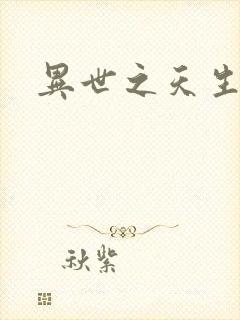 異世之天生
秋紫